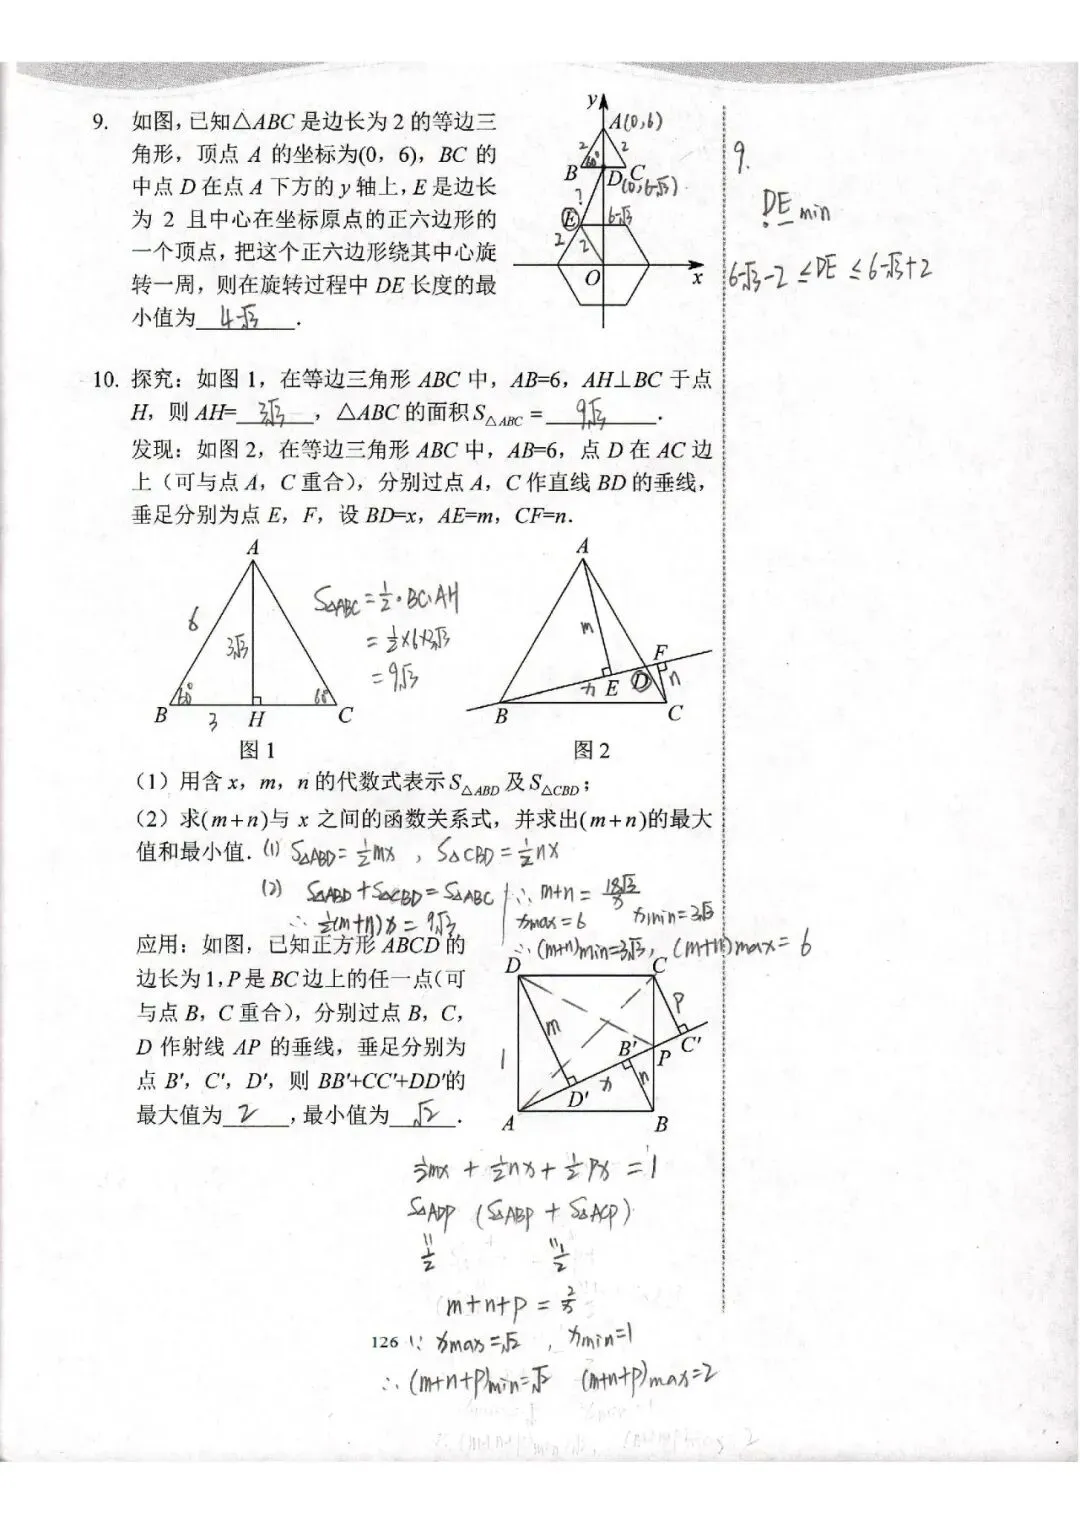 9. 如图,已知△ABC 是边长为 2 的等边三
角形，顶点 A 的坐标为(0，6)，BC 的
中点 D 在点 A 下方的 y 轴上，E 是边长
为 2 且中心在坐标原点的正六边形的
一个顶点，把这个正六边形绕其中心旋
转一周，则在旋转过程中 DE 长度的最
小值为 4-√3 .
y
A(0,6)
2
2
60°
B
D
C
(0,6-√3)
?
E
6-√3
2
2
O
x
9.
DE min
6-√3-2 ≤DE ≤6-√3+2
10. 探究：如图 1，在等边三角形 ABC 中，AB=6，AH⊥BC 于点
H，则 AH= 3√3 ，△ABC 的面积 S△ABC = 9√3 .
发现：如图 2，在等边三角形 ABC 中，AB=6，点 D 在 AC 边
上（可与点 A，C 重合），分别过点 A，C 作直线 BD 的垂线，
垂足分别为点 E，F，设 BD=x，AE=m，CF=n.
A
6
3√3
60°
60°
B
3
H
C
图 1
S△ABC = 1/2·BC·AH
= 1/2×6×3√3
= 9√3
A
m
F
x
E
D
n
B
C
图 2
（1）用含 x，m，n 的代数式表示 S△ABD 及 S△CBD；
（2）求(m+n)与 x 之间的函数关系式，并求出(m+n)的最大
值和最小值. (1) S△ABD = 1/2mx , S△CBD = 1/2nx
(2) S△ABD + S△CBD = S△ABC ∴ m+n = 18√3/x
∴ 1/2(m+n)x = 9√3 xmax = 6 xmin = 3√3
∴ (m+n)min=3√3, (m+n)max= 6
应用：如图，已知正方形 ABCD 的
边长为 1，P 是 BC 边上的任一点(可
与点 B，C 重合)，分别过点 B，C，
D 作射线 AP 的垂线，垂足分别为
点 B′，C′，D′，则 BB′+CC′+DD′的
最大值为 2 ，最小值为 √2 .
D
C
P
m
B′
P
C′
1
x
n
D′
A
B
1/2mx + 1/2nx + 1/2px = 1
S△ADP (S△ABP + S△ACP)
=1/2 =1/2
m+n+p = 2/x
126
∵ xmax =√2 , xmin=1
∴ (m+n+p)min=√2 (m+n+p)max=2